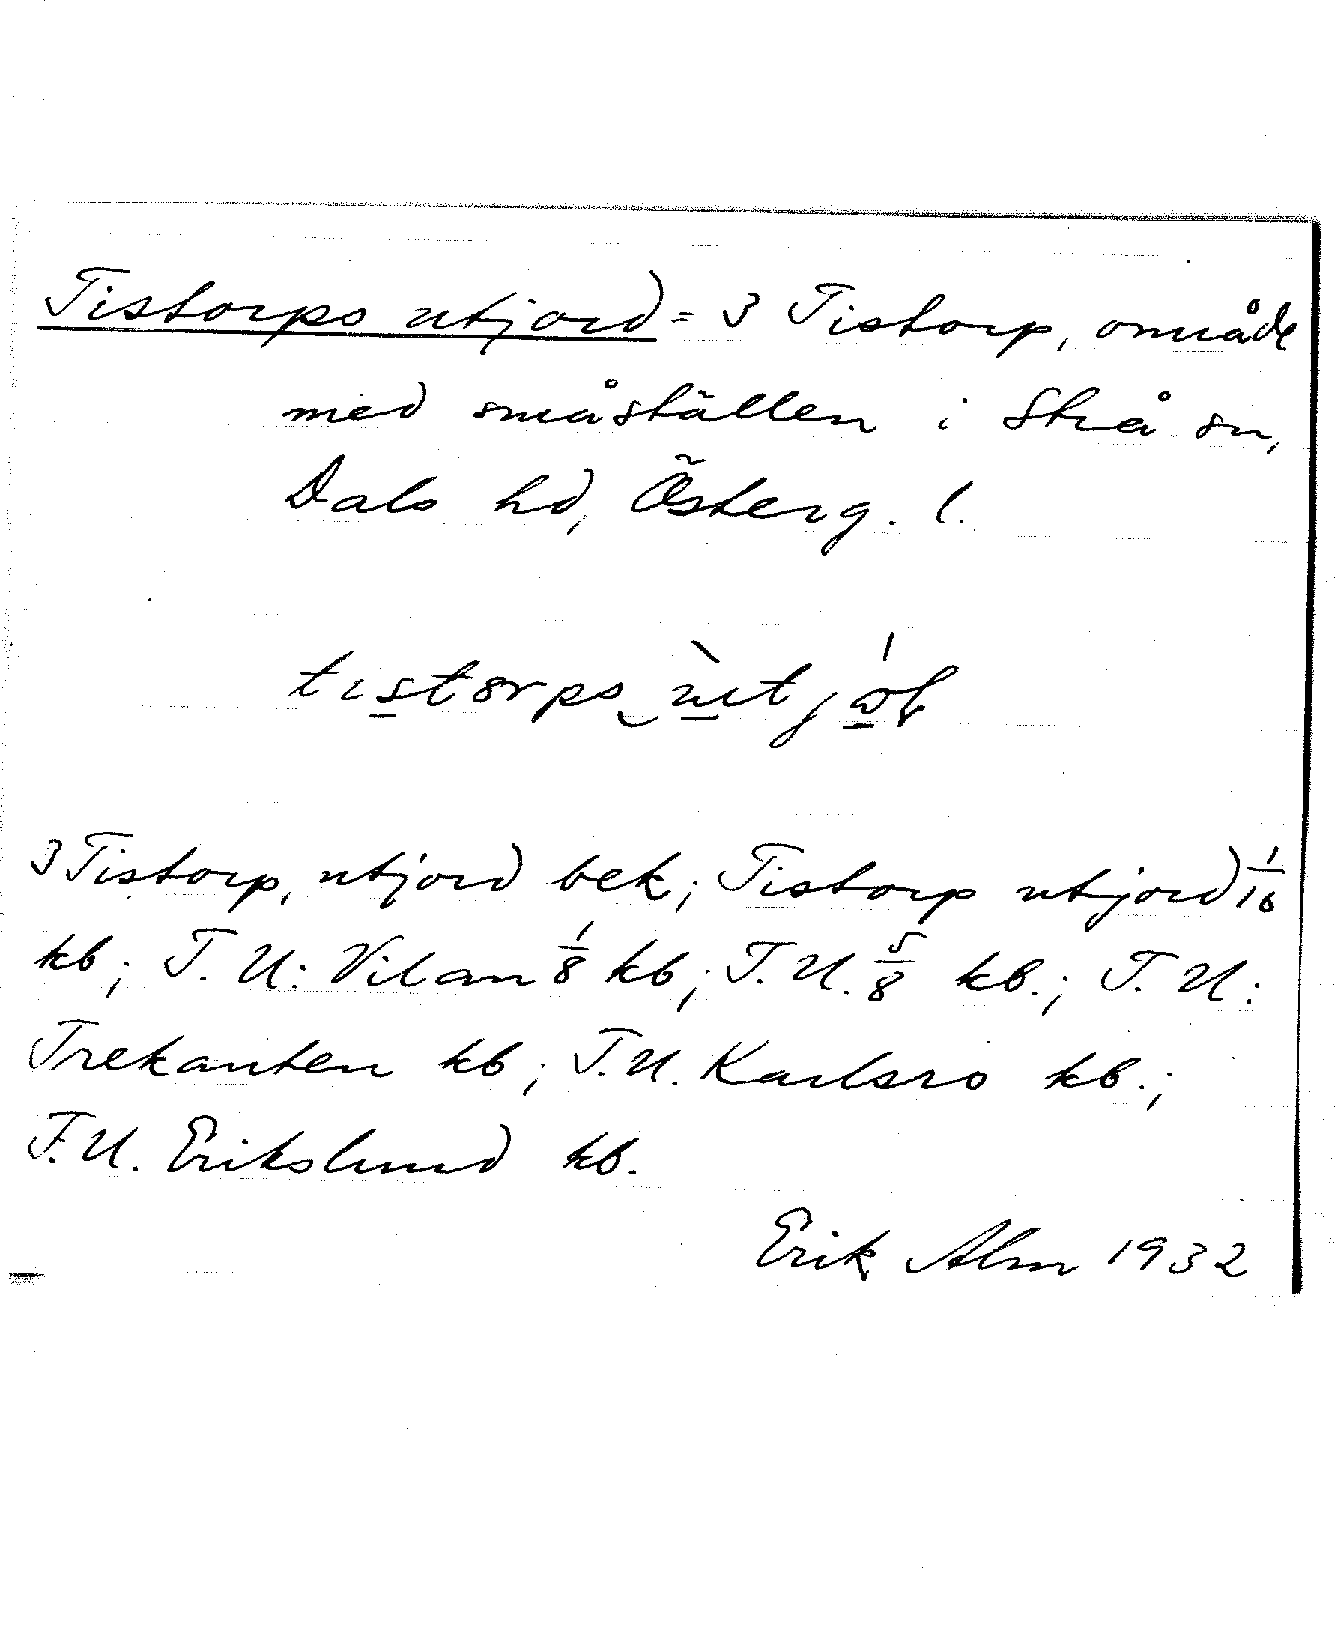 Tistorps utjord = 3 Tistorp, område
med småställen i Strå sn,
Dals hd, Österg. l.
3 Tistorp, utjord bek; Tistorp utjord 1/16
kb; T. U: Vilan 1/8 kb; T.U. 5/8 kb.; T. U:
Trekanten kb; T.U. Karlsro kb.;
T.U. Erikslund kb.
Erik Alm 1932